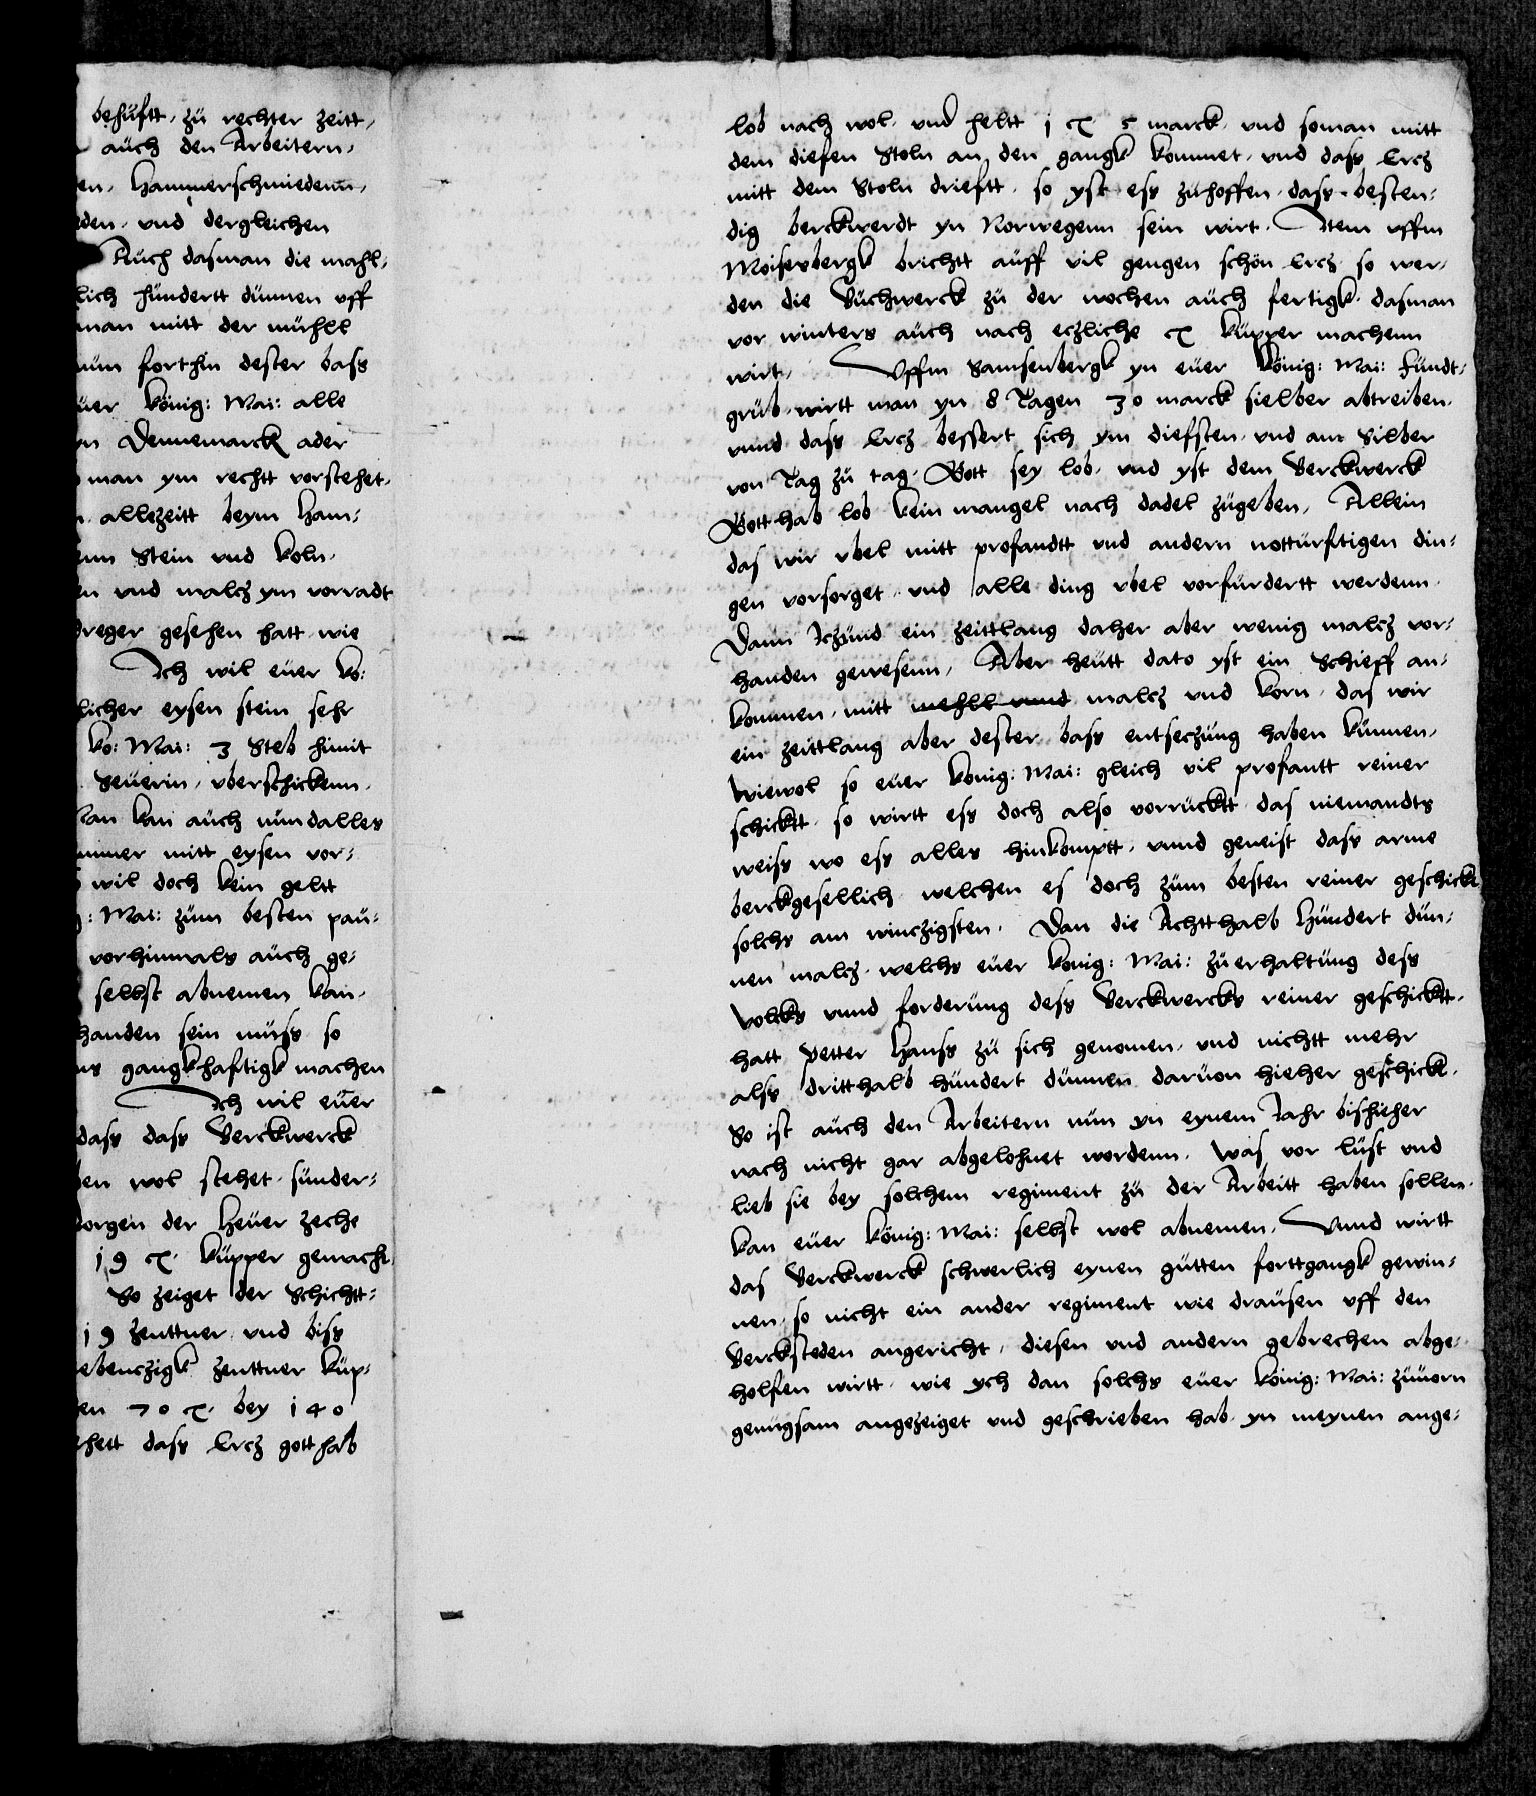 behuftt, zu rechter zeitt,
auch den Arbeitern,
en, Hammerschmiedenn,
den, und dergleichen
Auch dasman die mahl,
lich hundertt dunnen uff
man mitt der muhll
nun forthin dester bass
uer König: Mai: alle
yn Dennemarck ader
man ym rechtt vorstehet,
allezeitt beym Ham,
nn Stein vnd Koln,
en vnd malcz ym vorradt
dreger gesehen hatt wie
Ich wil euer ko:
licher eysen stein sehr
ko: Mai: 3 Steb himit
Seuerin, vberschickenn,
kan auch nun dalles
mmer mitt eysen vor,
wil doch kein geltt
: Mai: zum besten pau,
vorhinmals auch ge,
selbst abnemen kan,
handen sein muss so
gangkhafftigk machen
Ich wil euer
dass dass Berckwerck
ben wol stehet, sunder,
borgen der Heuer zeche
19 Kupper gemacht
So zeiget der Schichtt,
19 zenttner, vnd biss
ebenczigk zenttner kup,
en 70 bey 140
hett dass Ercz gott hab
lob nach wol, und heltt 1 5 marck, vnd soman mitt
dem diefen Stoln an den gangk kommet, vnd dass Ercz
mitt dem Stoln drieftt, so yst ess zuhoffen, dass besten,
dig berckwerdt yn Norwegenn sein wirt. Item uffm
Moiserbergk brichtt auff vil gengen schön Ercz, so wer,
den die Buchwerck zu der wochen auch fertigk, dasman
vor winters auch nach eczliche Kupper machenn
wirt, Uffm Samsenbergk yn euer König: Mai: Fundt,
grub, wirtt man yn 8 Tagen 30 marck sielber abtreiben,
vnnd dass Ercz bessert sich ym diefsten, vnd am Silber
von Tag zu tag, Gott sey lob, vnd yst dem Berckwerck
Gott hab lob kein mangel nach dadel zugeben, Allein
das wir vbel mitt profandtt vnd andern notturfftigen din,
gen vorsorget, vnd alle ding vbel vorfurdertt werdenn,
Dann Iczund ein zeittlang daher aber wenig malcz vor,
handen gewesenn, Aber heutt dato yst ein Schieff an,
kommen, mitt mehll vnnd malcz vnd korn, das wir
ein zeittlang aber dester bass entseczung haben kunnen,
Wiewol so euer König: Mai: gleich vil profantt reiner
schicktt, so wirtt ess doch also vorrucktt, das niemandts
weiss wo ess alles hinkomptt, vnnd geneist dass arme
berckgesellich, welchen es doch zum besten reiner geschickt
solchs am winczigsten. Dan die Achtthalb Hundert dun,
nen malcz, welchs euer König: Mai: zuerhaltung dess
Volcks vnnd forderung dess Berckwercks reiner geschicktt,
hatt Petter Hanss zu sich genomen, vnd nichtt mehr
alss dritthalb hundert dunnen daruon hieher geschickt,
So ist auch den Arbeitern nun yn eynem Jahr bisshieher
nach nicht gar abgelohnet wordenn, Was vor lust vnd
lieb sie bey solchem regiment zu der Arbeitt haben sollen,
kan euer König: Mai: selbst wol abnemen, Vnnd wirtt
das Berckwerck schwerlich eynen gutten forttgangk gewin,
nen, so nicht ein ander regiment wie drausen uff den
Berckstedten angericht, diesen vnd andern gebrechen abge,
holffen wirtt, wie ych dan solchs euer König: Mai: zuuorn
genugsam angezeiget vnd geschrieben hab, yn meynen ange,